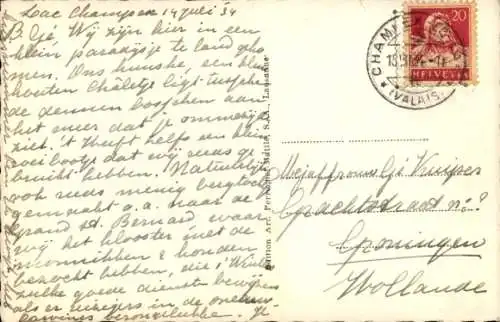 Lac Champex 14 Juli '34
B. Wij zijn hier in een
klein paradijsje te land geko
men. Ons huiske, een klein
houten Châletje ligt tusschen
de dennen bosschen aan
het meer dat je ommezijds
ziet. 't Heeft zelfs een klein
roeibootje dat wij reeds ge
bruikt hebben. Natuurlijk
ook reeds menig bergtocht
gemaakt o.a. naar de
Grand St. Bernard waar
wij het klooster met de
monniken & honden
bezocht hebben, die 's Winters
zulke goede diensten bewijzen
als er reizigers in de
Edition Art. Perrochet-Matile, S.A.L., Lausanne
20
HELVETIA
CHAMPEX
(VALAIS)
Mejuffrouw Kuiper
Grachtstraat
Groningen
Hollande